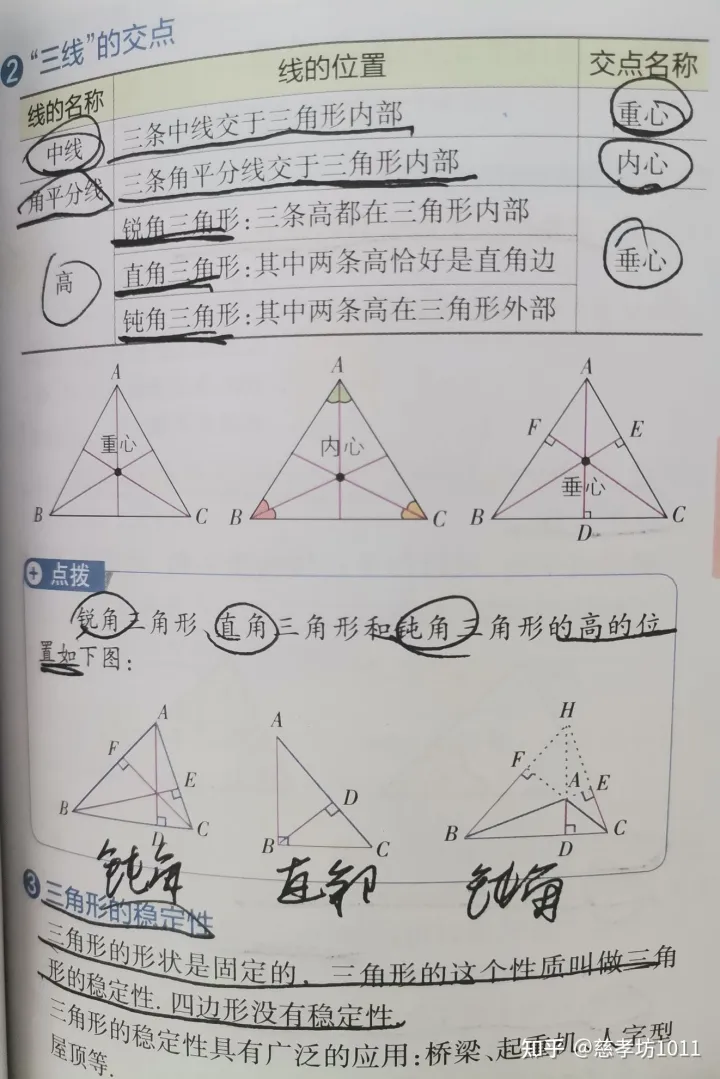 2 “三线”的交点
线的名称 线的位置 交点名称
中线 三条中线交于三角形内部 重心
角平分线 三条角平分线交于三角形内部 内心
高 锐角三角形:三条高都在三角形内部 垂心
直角三角形:其中两条高恰好是直角边
钝角三角形:其中两条高在三角形外部
A A A
F E
重心 内心 垂心
B C B C B D C
+ 点拨
锐角三角形、直角三角形和钝角三角形的高的位
置如下图:
A A H
F E D F A E
B D C B C B D C
钝角 直角 钝角
3 三角形的稳定性
三角形的形状是固定的,三角形的这个性质叫做三角
形的稳定性.四边形没有稳定性.
三角形的稳定性具有广泛的应用:桥梁、起重机、人字型
屋顶等.
知乎 @慈孝坊1011